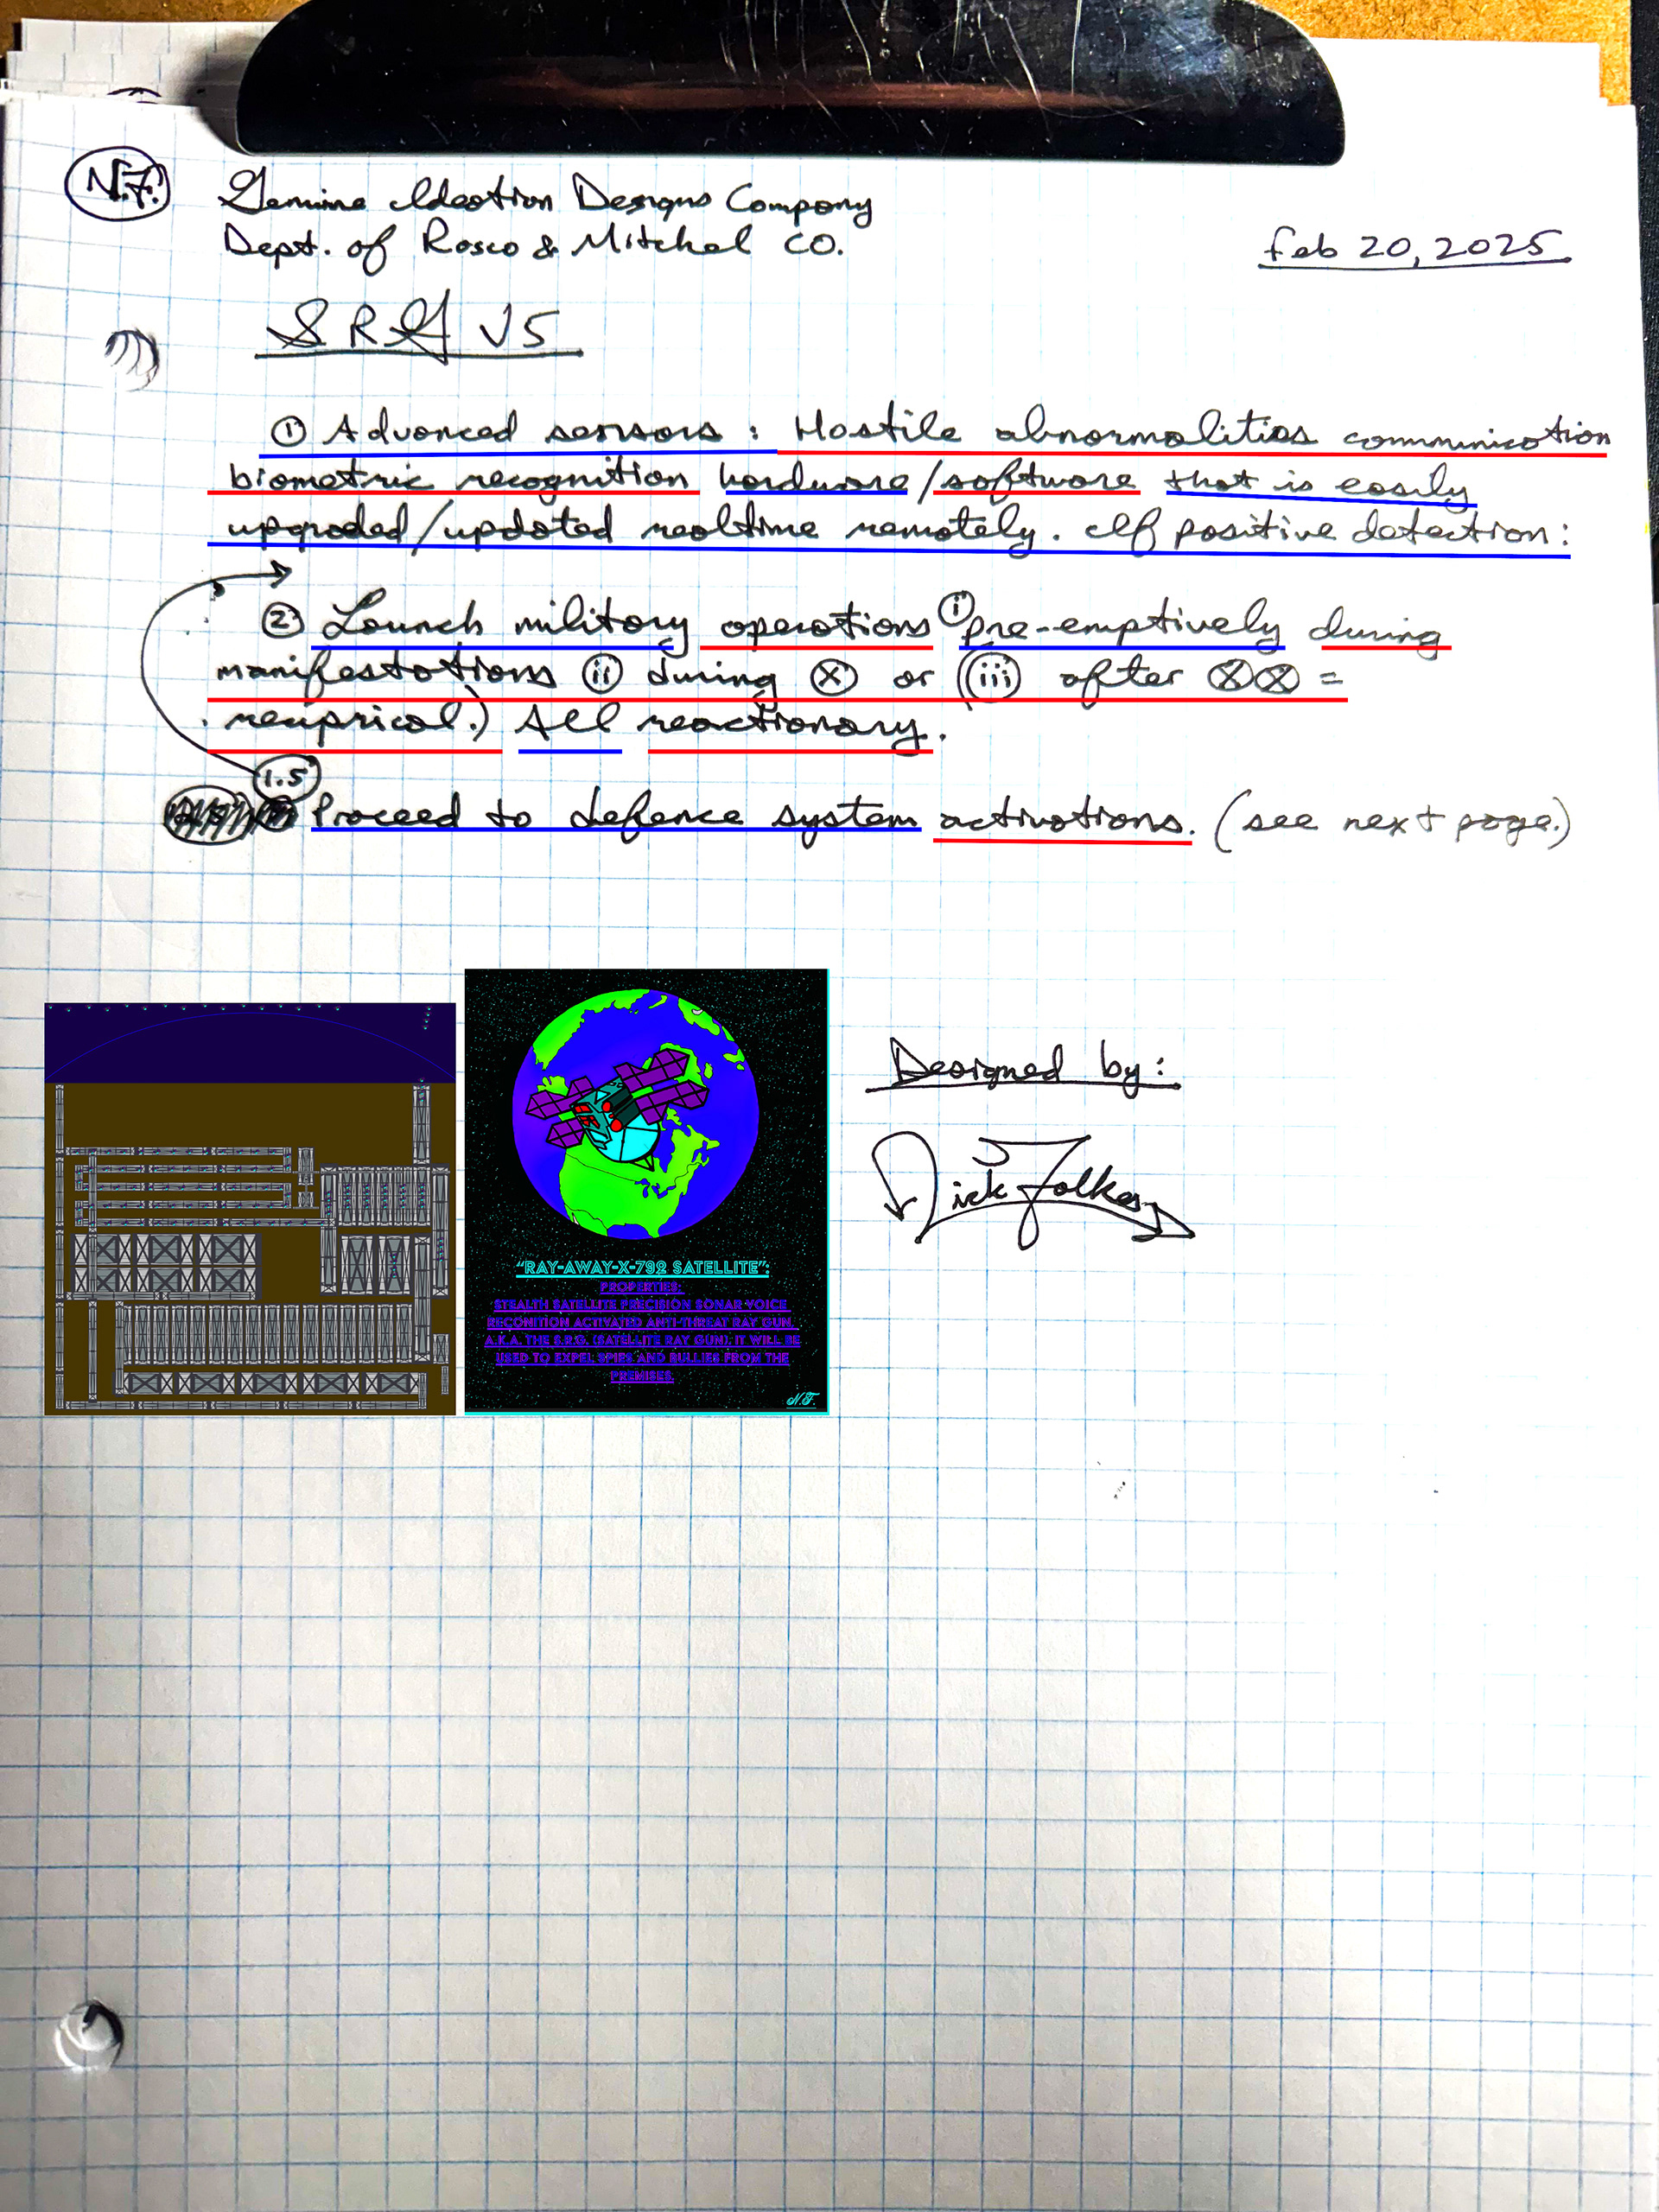 N.F. Genuine Ideation Designs Company
Dept. of Rosco & Mitchel CO.
Feb 20, 2025
SRG V5
① Advanced sensors: Hostile abnormalities communication
biometric recognition hardware/software that is easily
upgraded/updated realtime remotely. If positive detection:
② Launch military operations ⓘ pre-emptively during
manifestations ⓘⓘ during ⓧ or (ⓘⓘⓘ after ⓧⓧ =
reciprical.) All reactionary.
1.5
Proceed to defence system activations. (see next page.)
"RAY-AWAY-X-792 SATELLITE":
PROPERTIES:
STEALTH SATELLITE PRECISION SONAR VOICE
RECONITION ACTIVATED ANTI-THREAT RAY GUN.
A.K.A. THE S.R.G. (SATELLITE RAY GUN). IT WILL BE
USED TO EXPEL SPIES AND BULLIES FROM THE
PREMISES.
N.F.
Designed by:
Nick Folkes